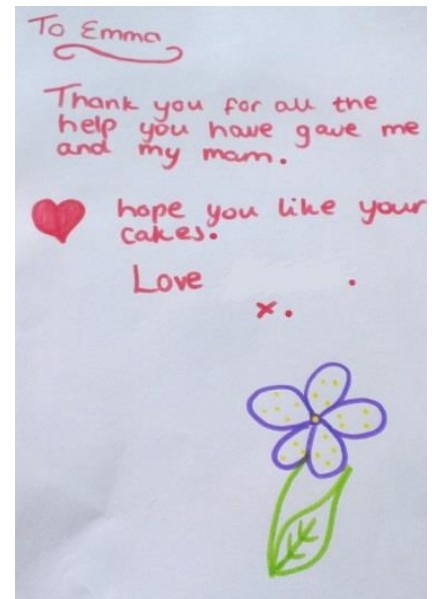 To Emma
Thank you for all the
help you have gave me
and my mam.
hope you like your
cakes.
Love .
x.